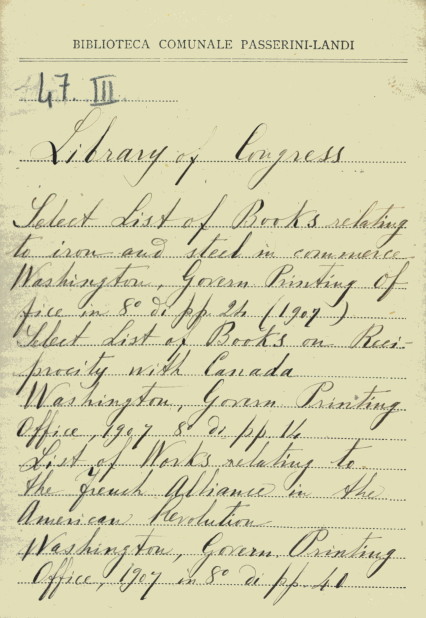 BIBLIOTECA COMUNALE PASSERINI-LANDI
47. III
Library of Congress
Select List of Books relating
to iron and steel in commerce
Washington, Govern Printing Of
fice in 8° di pp. 24 (1907)
Select List of Books on Reci-
procity with Canada
Washington, Govern Printing
Office, 1907 8° di pp. 14
List of Works relating to
the french Alliance in the
American Revolution
Washington, Govern. Printing
Office, 1907 in 8° di pp. 40